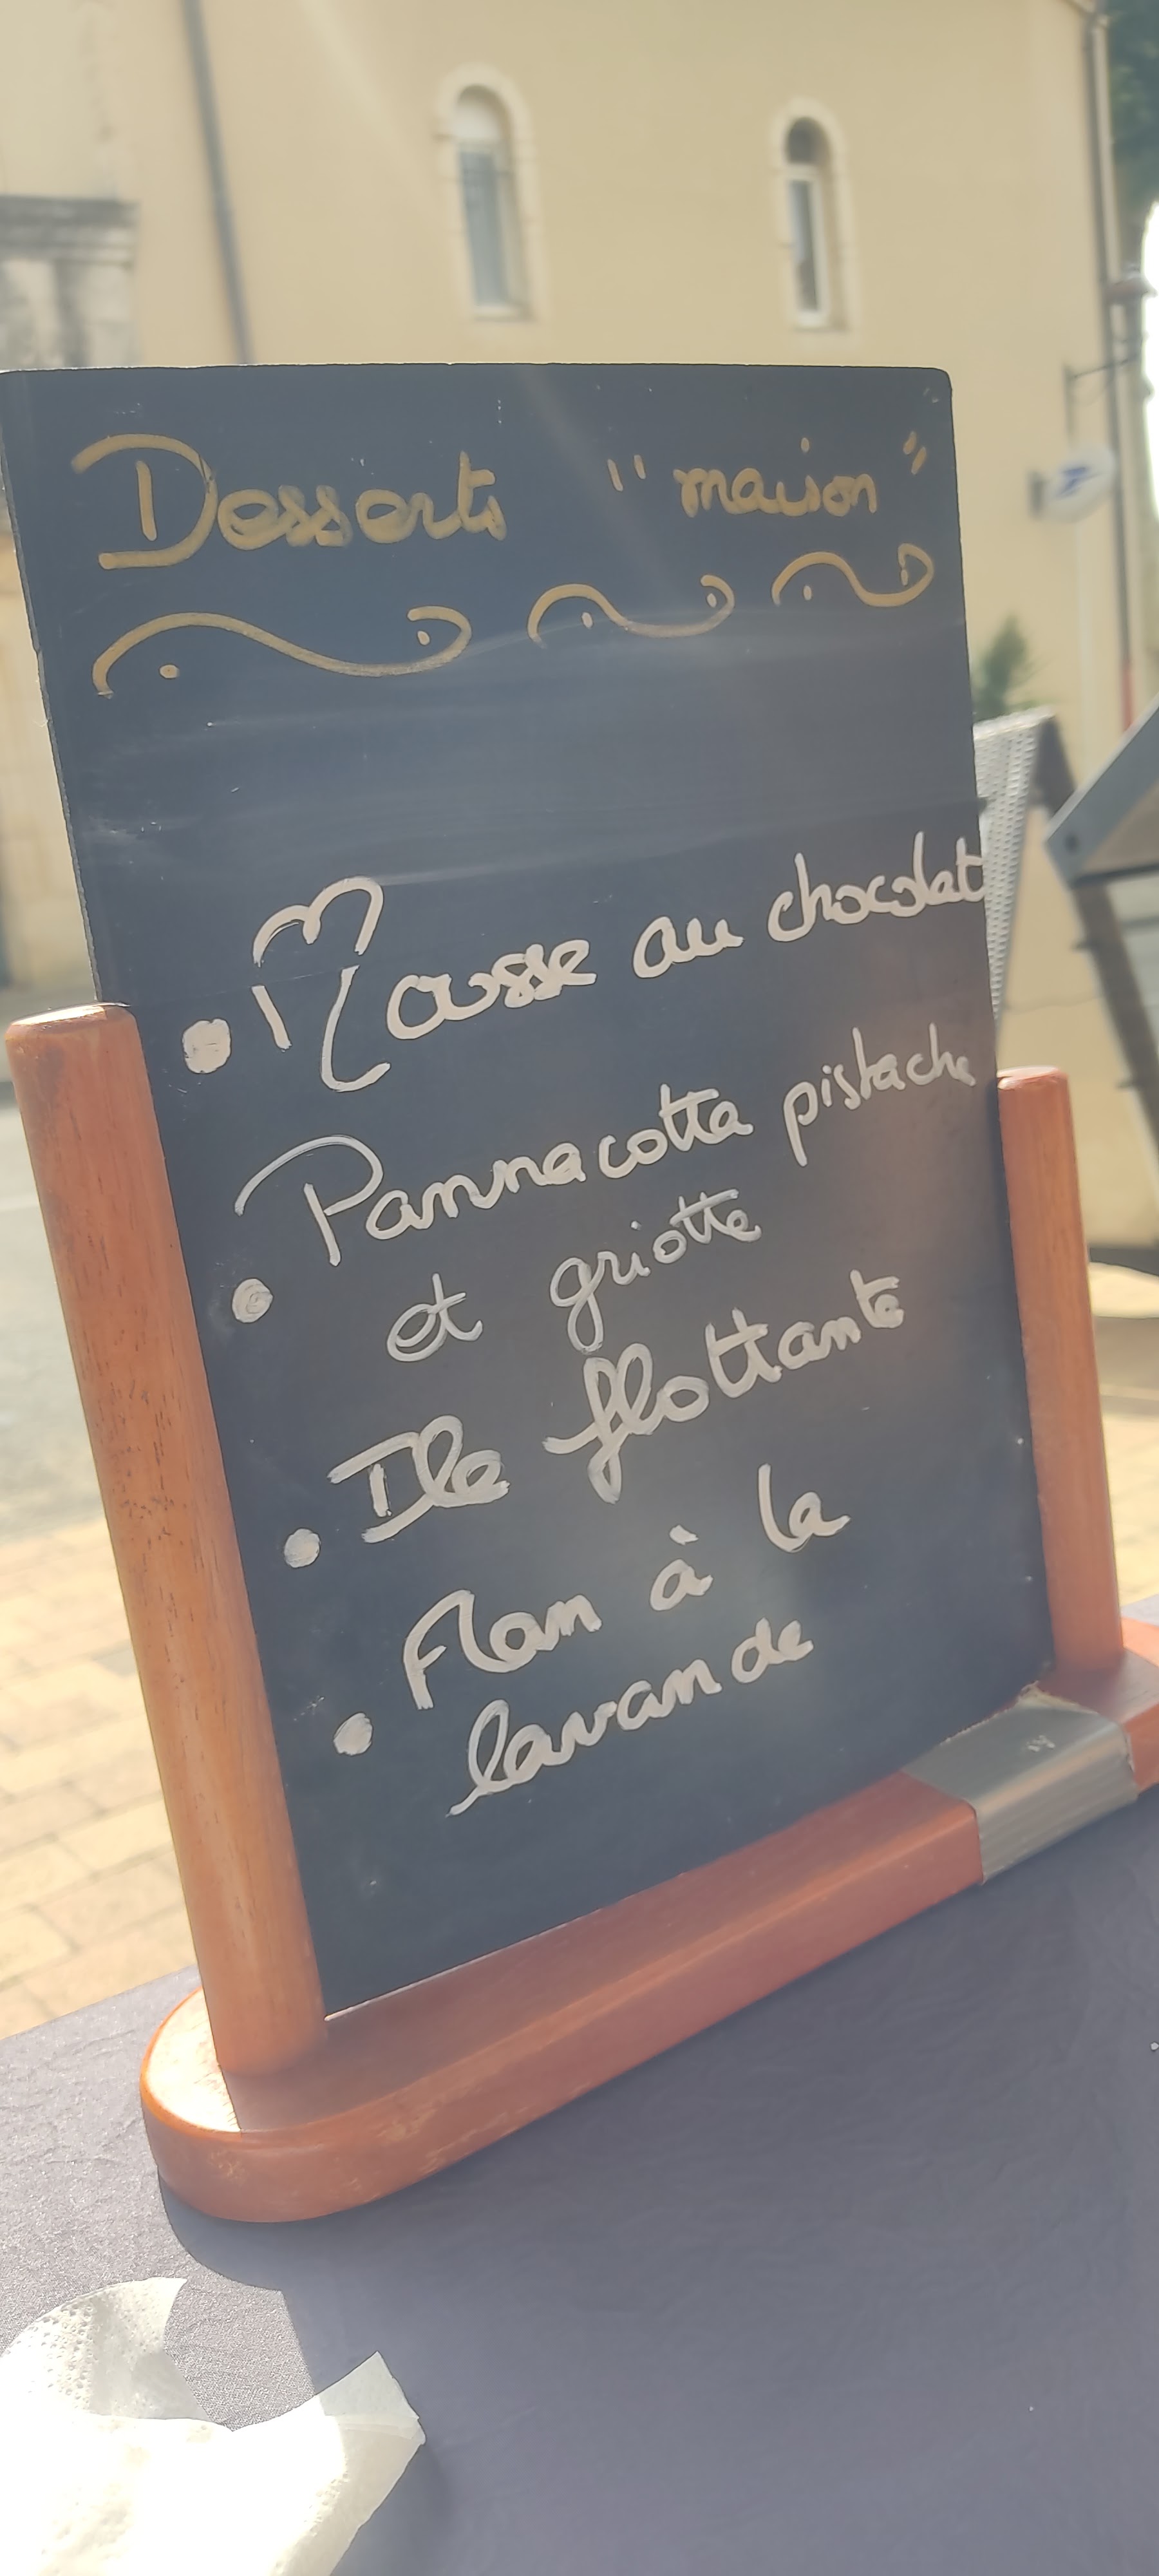 Desserts "maison"
• Mousse au chocolat
• Pannacotta pistache
et griotte
• Ile flottante
• Flan à la
lavande